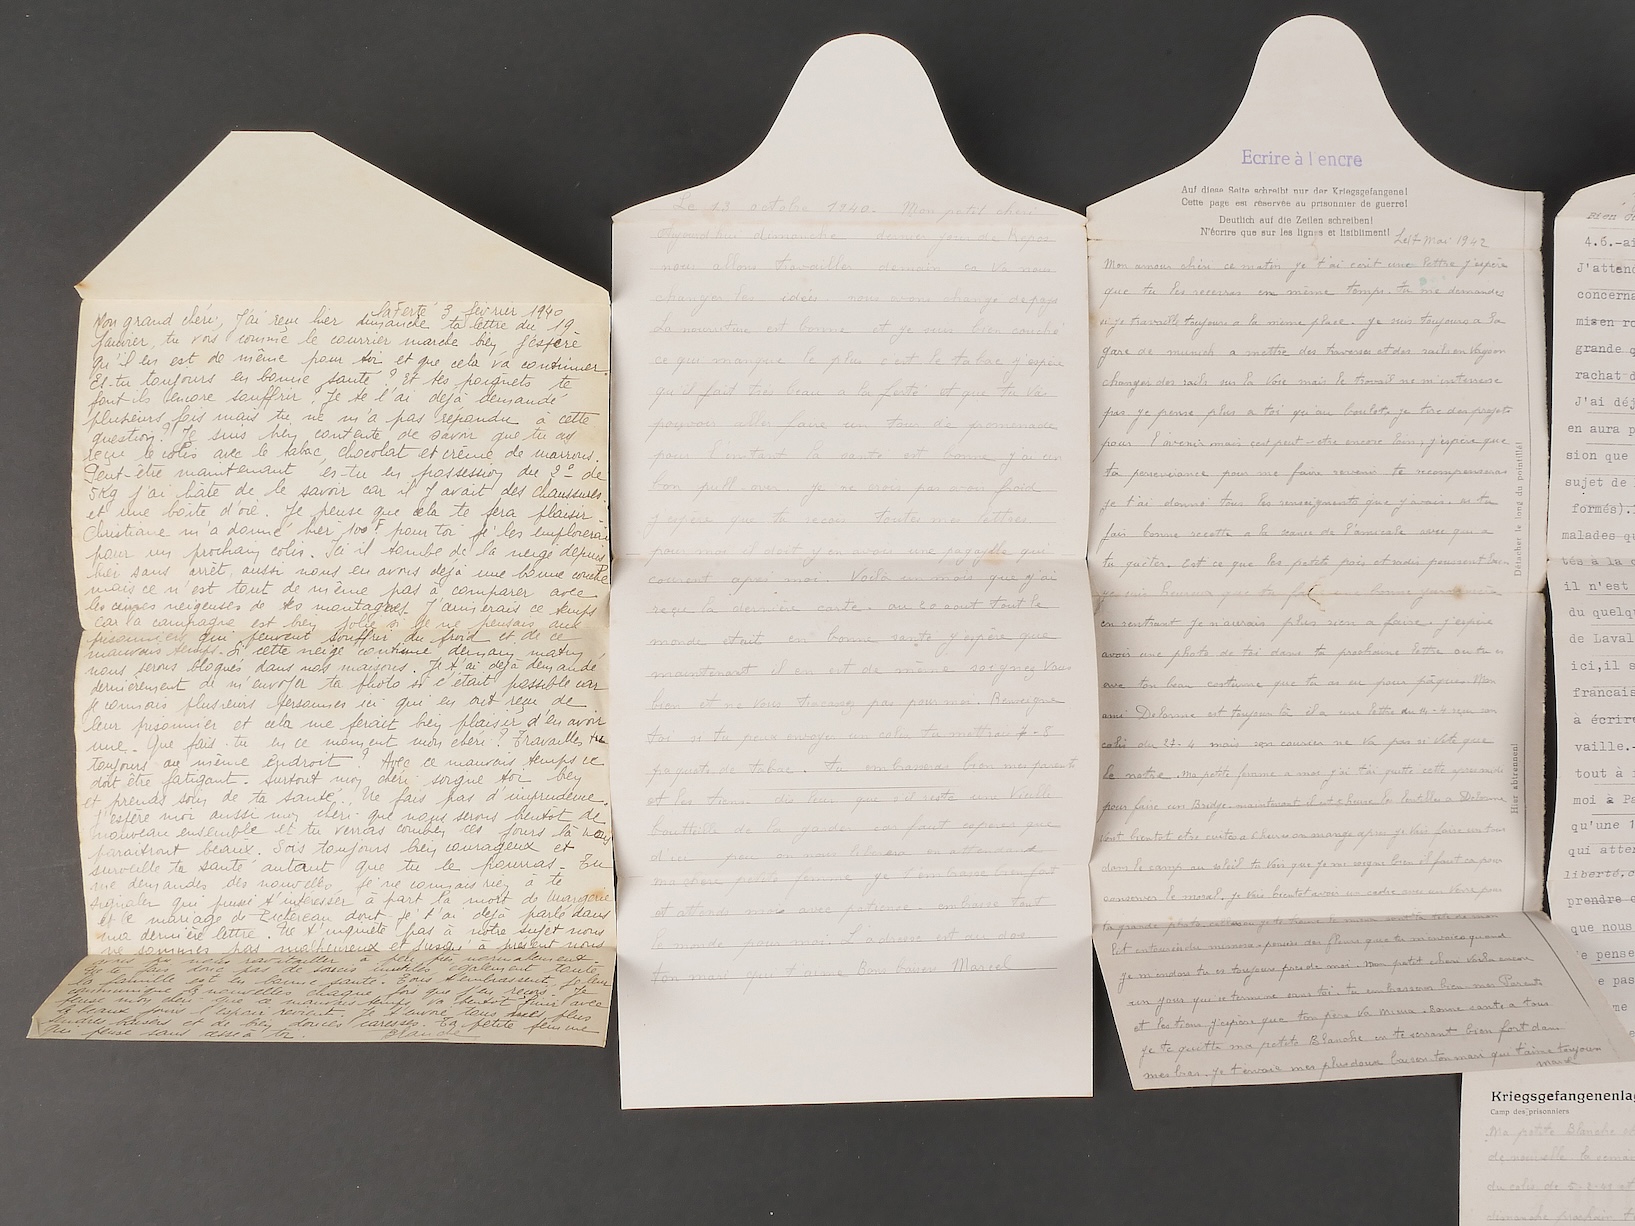 La Ferté 3 février 1940
Mon grand chéri, J'ai reçu hier dimanche ta lettre du 19
janvier, tu vois comme le courrier marche bien j'espère
qu'il en est de même pour toi et que cela va continuer.
Es-tu toujours en bonne santé? Et tes poignets te
font-ils encore souffrir. Je te l'ai déjà demandé
plusieurs fois mais tu ne m'a pas répondu à cette
question? Je suis bien contente de savoir que tu as
reçu le colis avec le tabac, chocolat et crème de marrons.
Peut-être maintenant es-tu en possession du 2e de
5Kg j'ai hâte de le savoir car il y avait des chaussures
et une boîte d'oie. Je pense que cela te fera plaisir
Christiane m'a donné hier 100F pour toi je les emploierai
pour un prochain colis. Ici il tombe de la neige depuis
hier sans arrêt, aussi nous en avons déjà une bonne couche
mais ce n'est tout de même pas à comparer avec
les cimes neigeuses de tes montagnes. J'aimerais ce temps
car la campagne est bien jolie si je ne pensais aux
prisonniers qui peuvent souffrir du froid et de ce
mauvais temps. Si cette neige continue demain matin
nous serons bloqués dans nos maisons. Je t'ai déjà demandé
dernièrement de m'envoyer ta photo si c'était possible car
je connais plusieurs personnes ici qui en ont reçu de
leur prisonnier et cela me ferait bien plaisir d'en avoir
une. Que fais-tu en ce moment mon chéri? Travailles tu
toujours au même endroit? Avec ce mauvais temps ce
doit être fatigant. Surtout mon chéri soigne toi bien
et prends soin de ta santé. Ne fais pas d'imprudence.
J'espère moi aussi mon chéri que nous serons bientôt de
nouveau ensemble et tu verras combien ces jours là nous
paraîtront beaux. Sois toujours bien courageux et
surveille ta santé autant que tu le pourras. Tu
me demandes des nouvelles, je ne connais rien à te
signaler qui puisse t'intéresser à part la mort de
et le mariage de dont je t'ai déjà parlé dans
ma dernière lettre. Ne t'inquiète pas à notre sujet nous
ne sommes pas malheureux et jusqu'à présent nous
nous ravitailler à peu près normalement.
Ne te fais donc pas de soucis inutiles également toute
la famille est en bonne santé. Tous t'embrassent, je leur
communique tes nouvelles chaque fois que j'en reçois. Je
pense mon chéri que ce mauvais temps va bientôt finir avec
de beaux jours l'espoir revient. Je t'envoie tous mes plus
tendres baisers et de bien douces caresses. Ta petite femme
qui pense sans cesse à toi. Blanche
Le 13 octobre 1940. Mon petit chéri
Aujourd'hui dimanche dernier jour de Repos
nous allons travailler demain ca va nous
changer les idées nous avons changé de pays
La nourriture est bonne et je suis bien couché
ce qui manque le plus c'est le tabac j'espère
qu'il fait très beau a la ferté et que tu vas
pouvoir aller faire un tour de promenade
pour l'instant la santé est bonne j'ai un
bon pull-over je ne crois pas avoir froid
j'espère que tu reçois toutes mes lettres
pour moi il doit y en avoir une pagaille qui
courent apres moi Voilà un mois que j'ai
reçu la dernière carte. au 20 aout tout le
monde etait en bonne santé j'espère que
maintenant il en est de même soignez vous
bien et ne vous tracassez pas pour moi. Renseigne
toi si tu peux envoyer un colis tu mettras 7-8
paquets de tabac. tu embrasseras bien mes parents
et les tiens dis leur que s'il reste une vieille
bouteille de la garder car faut esperer que
d'ici peu on nous liberera en attendant
ma chère petite femme je t'embrasse bien fort
et attends moi avec patience embrasse tout
le monde pour moi L'adresse est au dos
ton mari qui t'aime Bons baisers Marcel
Ecrire à l'encre
Auf diese Seite schreibt nur der Kriegsgefangene!
Cette page est réservée au prisonnier de guerre!
Deutlich auf die Zeilen schreiben!
N'écrire que sur les lignes et lisiblement!
Le 17 Mai 1942
Mon amour chéri ce matin je t'ai écrit une lettre j'espère
que tu les recevras en même temps. tu me demandes
si je travaille toujours a la même place. je suis toujours a la
gare de munich a mettre des traverses et des rails en
changer des rails sur la Voie mais le travail ne m'interesse
pas je pense plus a toi qu'au boulot. je tire des projets
pour l'avenir mais cest peut-etre encore loin, j'espère que
ta perseverance pour me faire revenir te recompenseras
je t'ai donné tous les renseignements que j'avais. as tu
fais bonne recette a la séance de l'amicale avec qui a
tu quêter. Est ce que les petits pois et radis poussent bien.
je suis heureux que tu bonne
en rentrant je n'aurais plus rien a faire. j'espère
avoir une photo de toi dans ta prochaine lettre ou tu es
avec ton beau costume que tu as eu pour pâques. Mon
ami Delorme est toujours là il a une lettre du 4-4 reçu son
colis du 27-4 mais son courrier ne va pas si vite que
le notre. Ma petite femme a moi j'ai t'ai quitté cette apres midi
pour faire un Bridge. maintenant il est heure les lentilles a Delorme
vont bientot etre cuites a heure on mange apres je vais faire un tour
dans le camp au soleil tu vois que je me soigne bien il faut ca pour
conserver le moral. je vais bientot avoir un cadre avec un verre pour
ta grande photo
lit entourée du pensées des fleurs que tu m'envoies quand
je m'endors tu es toujours pres de moi. Mon petit chéri voila encore
un jour qui se termine sans toi. tu embrasseras bien mes Parents
et les tiens j'espère que ton père va mieux. bonne santé a tous
je te quitte ma petite Blanche en te serrant bien fort dans
mes bras. je t'envoie mes plus doux baisers. ton mari qui t'aime toujours
Détacher le long du pointillé!
Hier abtrennen!
4.6.-ai
J'attend
concerna
mis en ro
grande q
rachat d
J'ai déj
en aura p
sion que
sujet de
formés).
malades qu
tés à la c
il n'est
du quelq
de Laval
ici,il s
francais
à écrire
vaille.-
tout à
moi à Pa
qu'une
qui atter
liberté,c
prendre
que nous
pense
pas
me
Kriegsgefangenenla
Camp des prisonniers
Ma petite Blanche
de nouvelle
du colis de
dimanche prochain